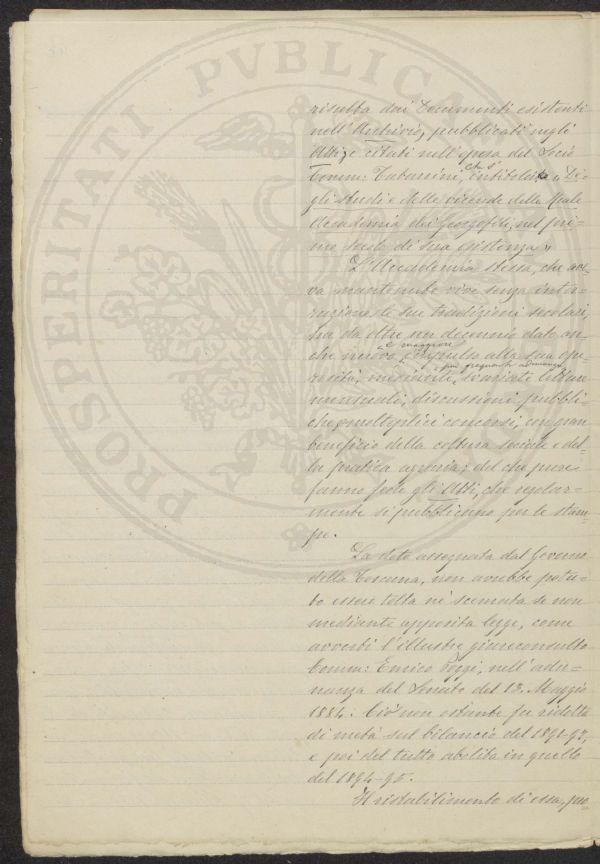 PROSPERITATI PVBLICAE
risulta dai documenti esistenti
nell'Archivio, pubblicati negli
Atti, e citati nell'opera del Socio
Comm: Tabarrini, intitolata "De-
gli studi e delle vicende della Reale
Accademia dei Georgofili, nel pri-
mo secolo di sua esistenza"
L'Accademia stessa, che ave-
va mantenute vive senza inter-
ruzione le sue tradizioni secolari,
ha da oltre un decennio dato an-
che nuovo e maggiore impulso alla sua ope-
rosità, mediante più frequenti adunanze, svariate letture
discussioni pubbli-
che, molteplici concorsi, in gran
beneficio della coltura sociale e del-
la pratica agraria; del che pure
fanno fede gli Atti, che regolar-
mente si pubblicano per le stam-
pe.
La dote assegnata dal Governo
della Toscana, non avrebbe potu-
to essere tolta nè scemata se non
mediante apposita legge, come
avvertì l'illustre giureconsulto
Comm: Enrico Poggi, nell'adu-
nanza del Senato del 13. Maggio
1884. Ciò non ostante fu ridotta
di metà sul bilancio del 1891-92,
e poi del tutto abolita in quello
del 1894-95.
Il ristabilimento di essa, può